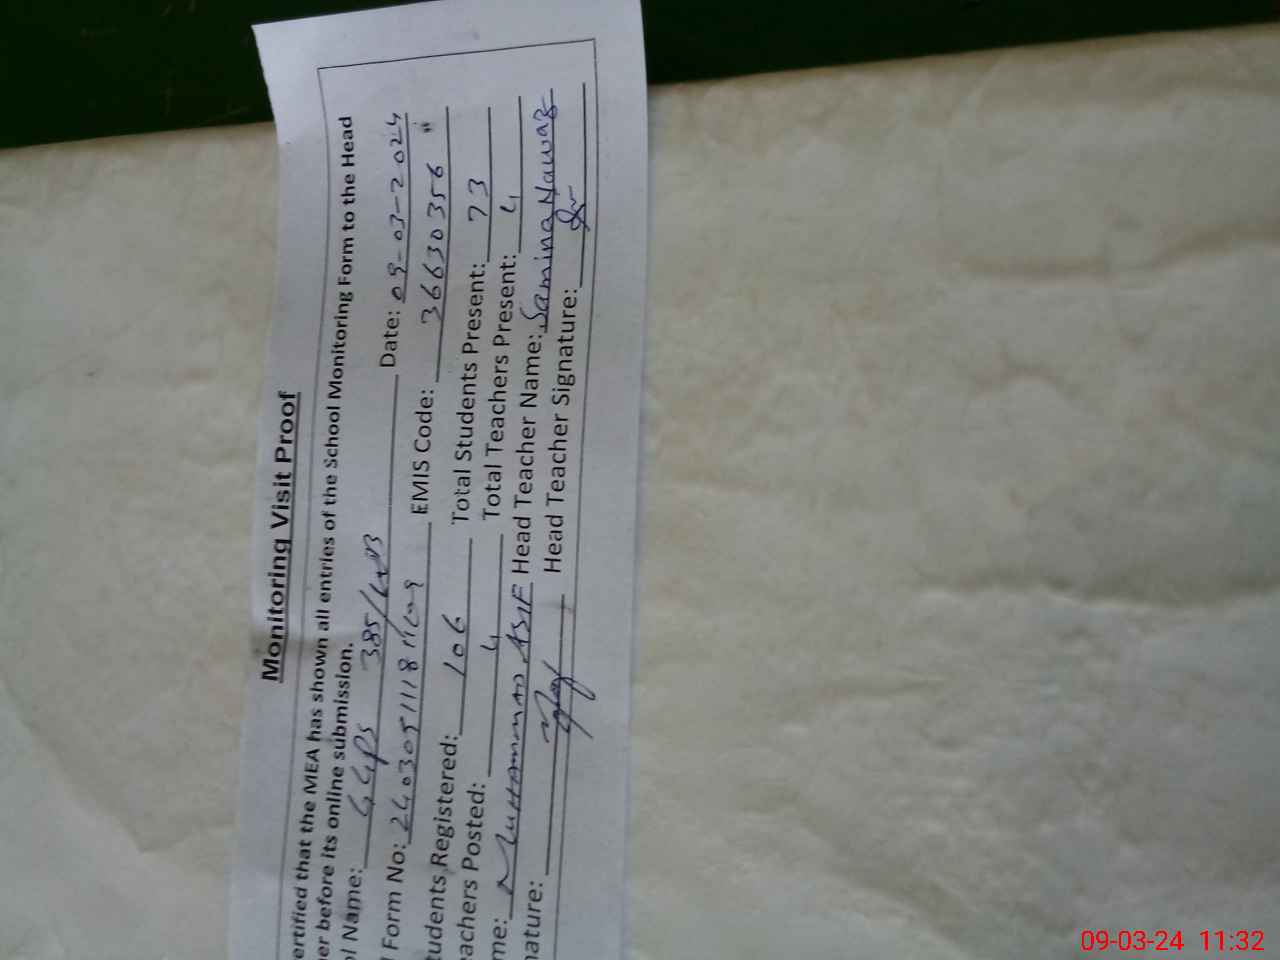 Monitoring Visit Proof
ertified that the MEA has shown all entries of the School Monitoring Form to the Head
er before its online submission.
l Name: GGPS 385/WB Date: 09-03-2024
Form No: EMIS Code: 36630356
tudents Registered: 106 Total Students Present: 73
eachers Posted: 4 Total Teachers Present: 4
me: MUHAMMAD ASIF Head Teacher Name: Samina Nawaz
nature: Head Teacher Signature:
09-03-24 11:32